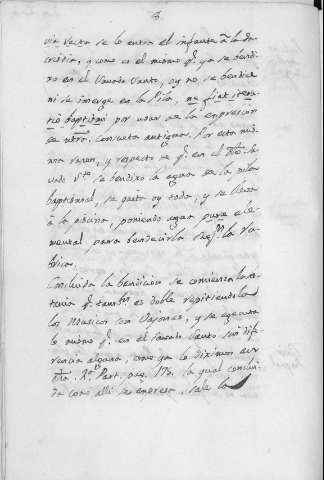 via recta se lo entra el infante á la Sa-
cristia, y como es el mismo q.e ya se bendi-
xo en el Savado Santo, oy no se bendice
ni se imerge en la Pila, ne fiat itera-
tio baptismi por usar de la expresion
de ntra. Consueta antigua. Por esta mis-
ma razon, y respecto de q.e en el Sa-
vado S.to se bendixo la agua de la pila
baptismal, se quita oy toda, y se lleva
á la piscina, poniendo agua pura ele-
mental para bendecirla seg.n la Ru-
brica.
Concluida la bendicion se comienza la Le-
tania q.e tambn. es doble repitiendola
los Musicos con Vajones, y se egecuta
lo mismo q.e en el Savado Santo sin dife-
rencia alguna, como ya lo diximos en
Part. pag. 175. la qual conclui-
da como alli se expresa, sale la